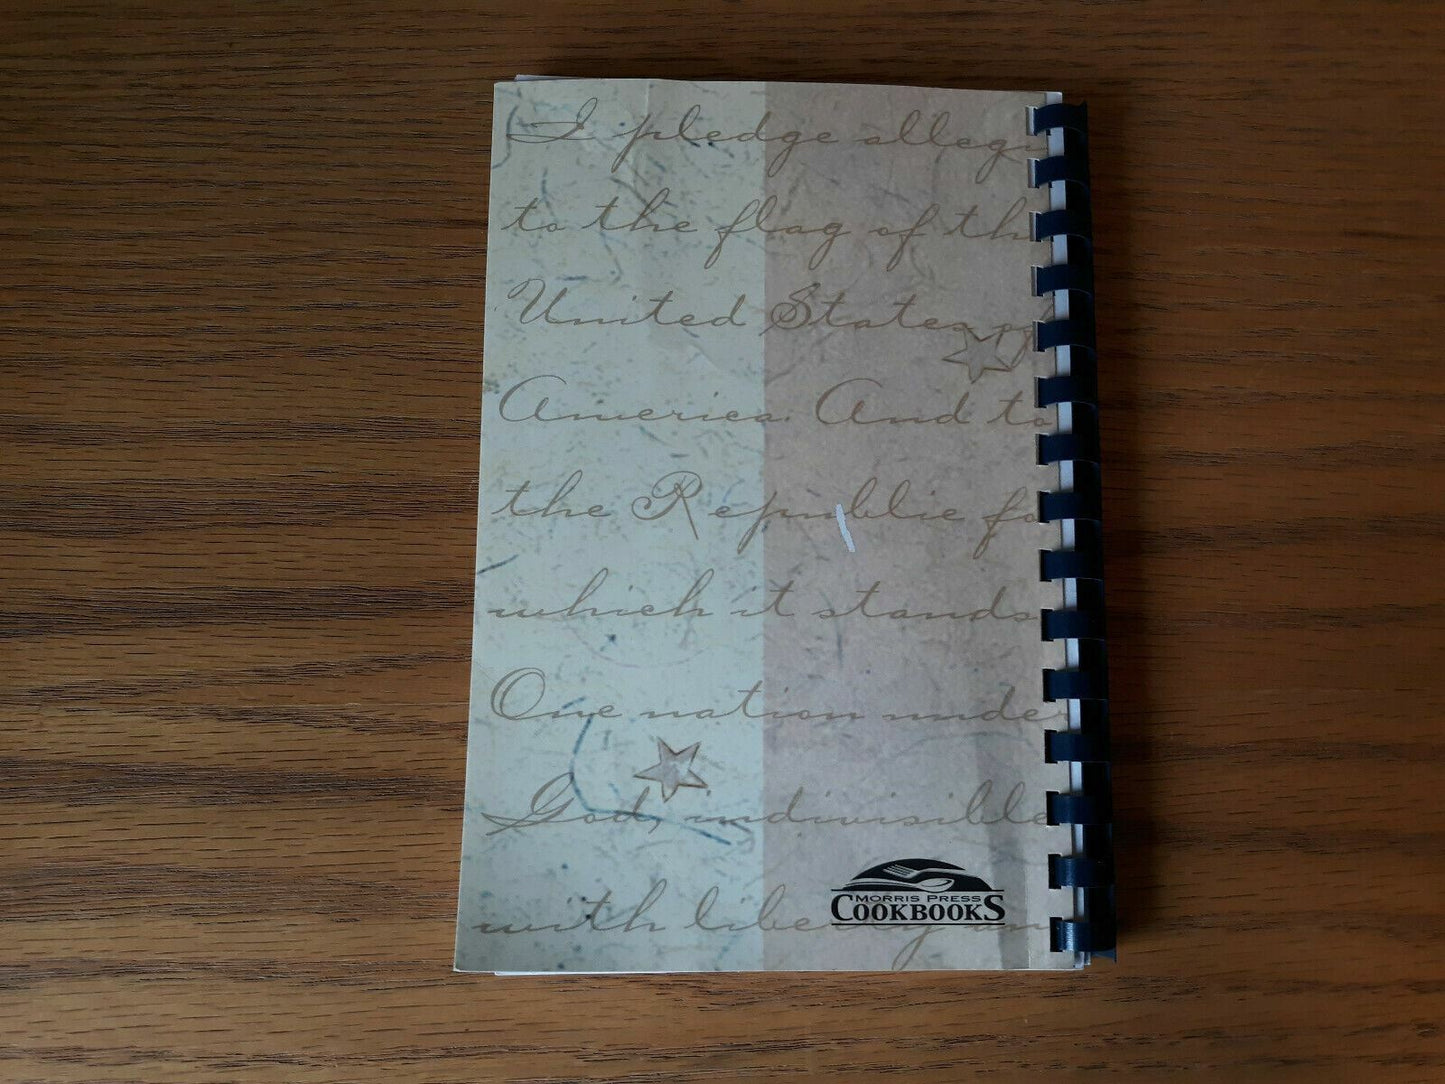 I pledge allegi
to the flag of th
United States of
America And to
the Republic fo
which it stands
One nation unde
God, indivisible
with liberty an
MORRIS PRESS
COOKBOOKS